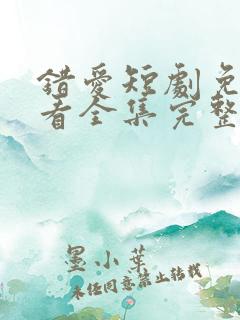 錯愛短劇免
看全集完整
墨小葉
未经同意禁止转载